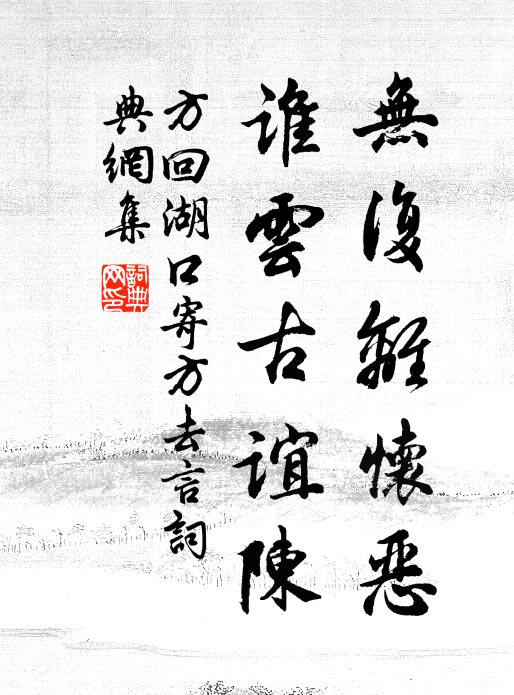 無復離懷惡
誰雲古誼陳
方回湖口寄方去言詞
典網集
詞典網印